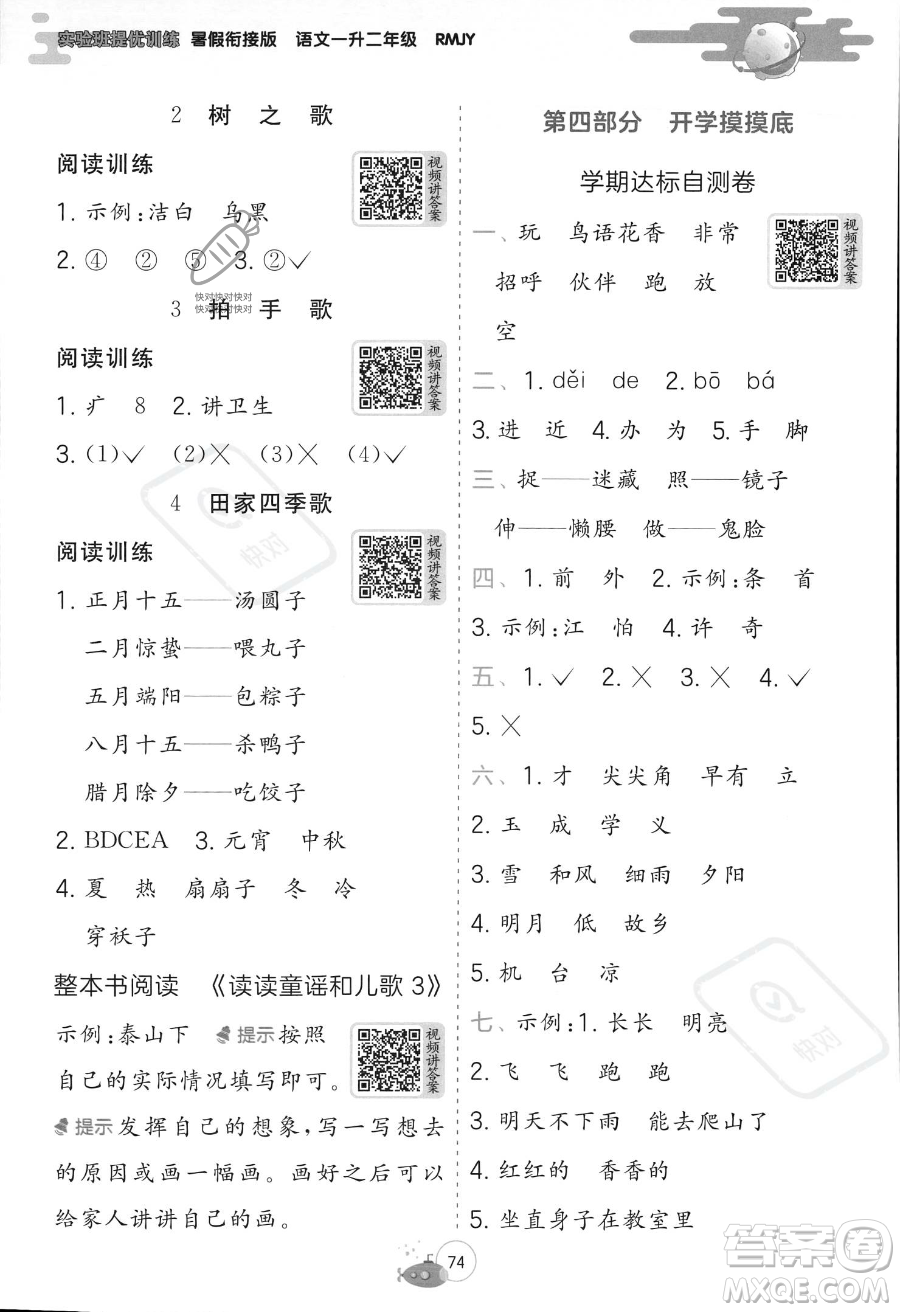 实验班提优训练 暑假衔接版 语文一升二年级 RMJY
2 树之歌
阅读训练
视频讲答案
1. 示例:洁白 乌黑
2. ④ ② ⑤ 3. ②✓
快对快对快对
快对快对快对
3 拍手歌
阅读训练
视频讲答案
1. 疒 8 2. 讲卫生
3. (1)✓ (2)✕ (3)✕ (4)✓
4 田家四季歌
快对
阅读训练
视频讲答案
1. 正月十五——汤圆子
二月惊蛰——喂丸子
五月端阳——包粽子
八月十五——杀鸭子
腊月除夕——吃饺子
2. BDCEA 3. 元宵 中秋
4. 夏 热 扇扇子 冬 冷
穿袄子
整本书阅读 《读读童谣和儿歌 3》
示例:泰山下 提示 按照
自己的实际情况填写即可。
视频讲答案
提示 发挥自己的想象,写一写想去
的原因或画一幅画。画好之后可以
给家人讲讲自己的画。
第四部分 开学摸摸底
学期达标自测卷
一、玩 鸟语花香 非常
招呼 伙伴 跑 放
空
视频讲答案
二、1. děi de 2. bō bá
3. 进 近 4. 办 为 5. 手 脚
三、捉——迷藏 照——镜子
伸——懒腰 做——鬼脸
四、1. 前 外 2. 示例:条 首
3. 示例:江 怕 4. 许 奇
五、1. ✓ 2. ✕ 3. ✕ 4. ✓
5. ✕
六、1. 才 尖尖角 早有 立
2. 玉 成 学 义
3. 雪 和风 细雨 夕阳
4. 明月 低 故乡
5. 机 台 凉
快对
七、示例:1. 长长 明亮
2. 飞 飞 跑 跑
3. 明天不下雨 能去爬山了
4. 红红的 香香的
5. 坐直身子在教室里
74
答案卷
MXQE.COM